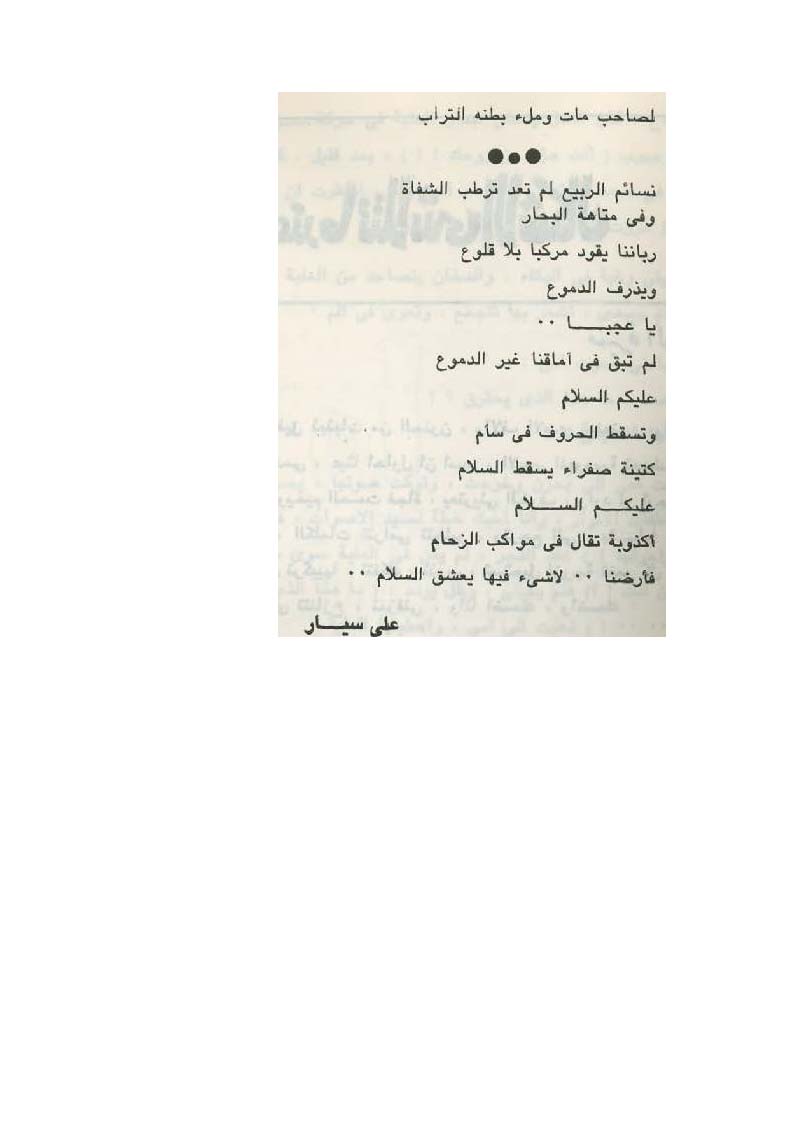 لصاحب مات وملء بطنه التراب
●●●
نسائم الربيع لم تعد ترطب الشفاة
وفى متاهة البحار
رباننا يقود مركبا بلا قلوع
ويذرف الدموع
يا عجبــــا ٠٠
لم تبق فى آماقنا غير الدموع
عليكم السلام
وتسقط الحروف فى سأم
كتينة صفراء يسقط السلام
عليكـــم الســـلام
أكذوبة تقال فى مواكب الزحام
فأرضنا ٠٠ لاشىء فيها يعشق السلام ٠٠
على سيـــار